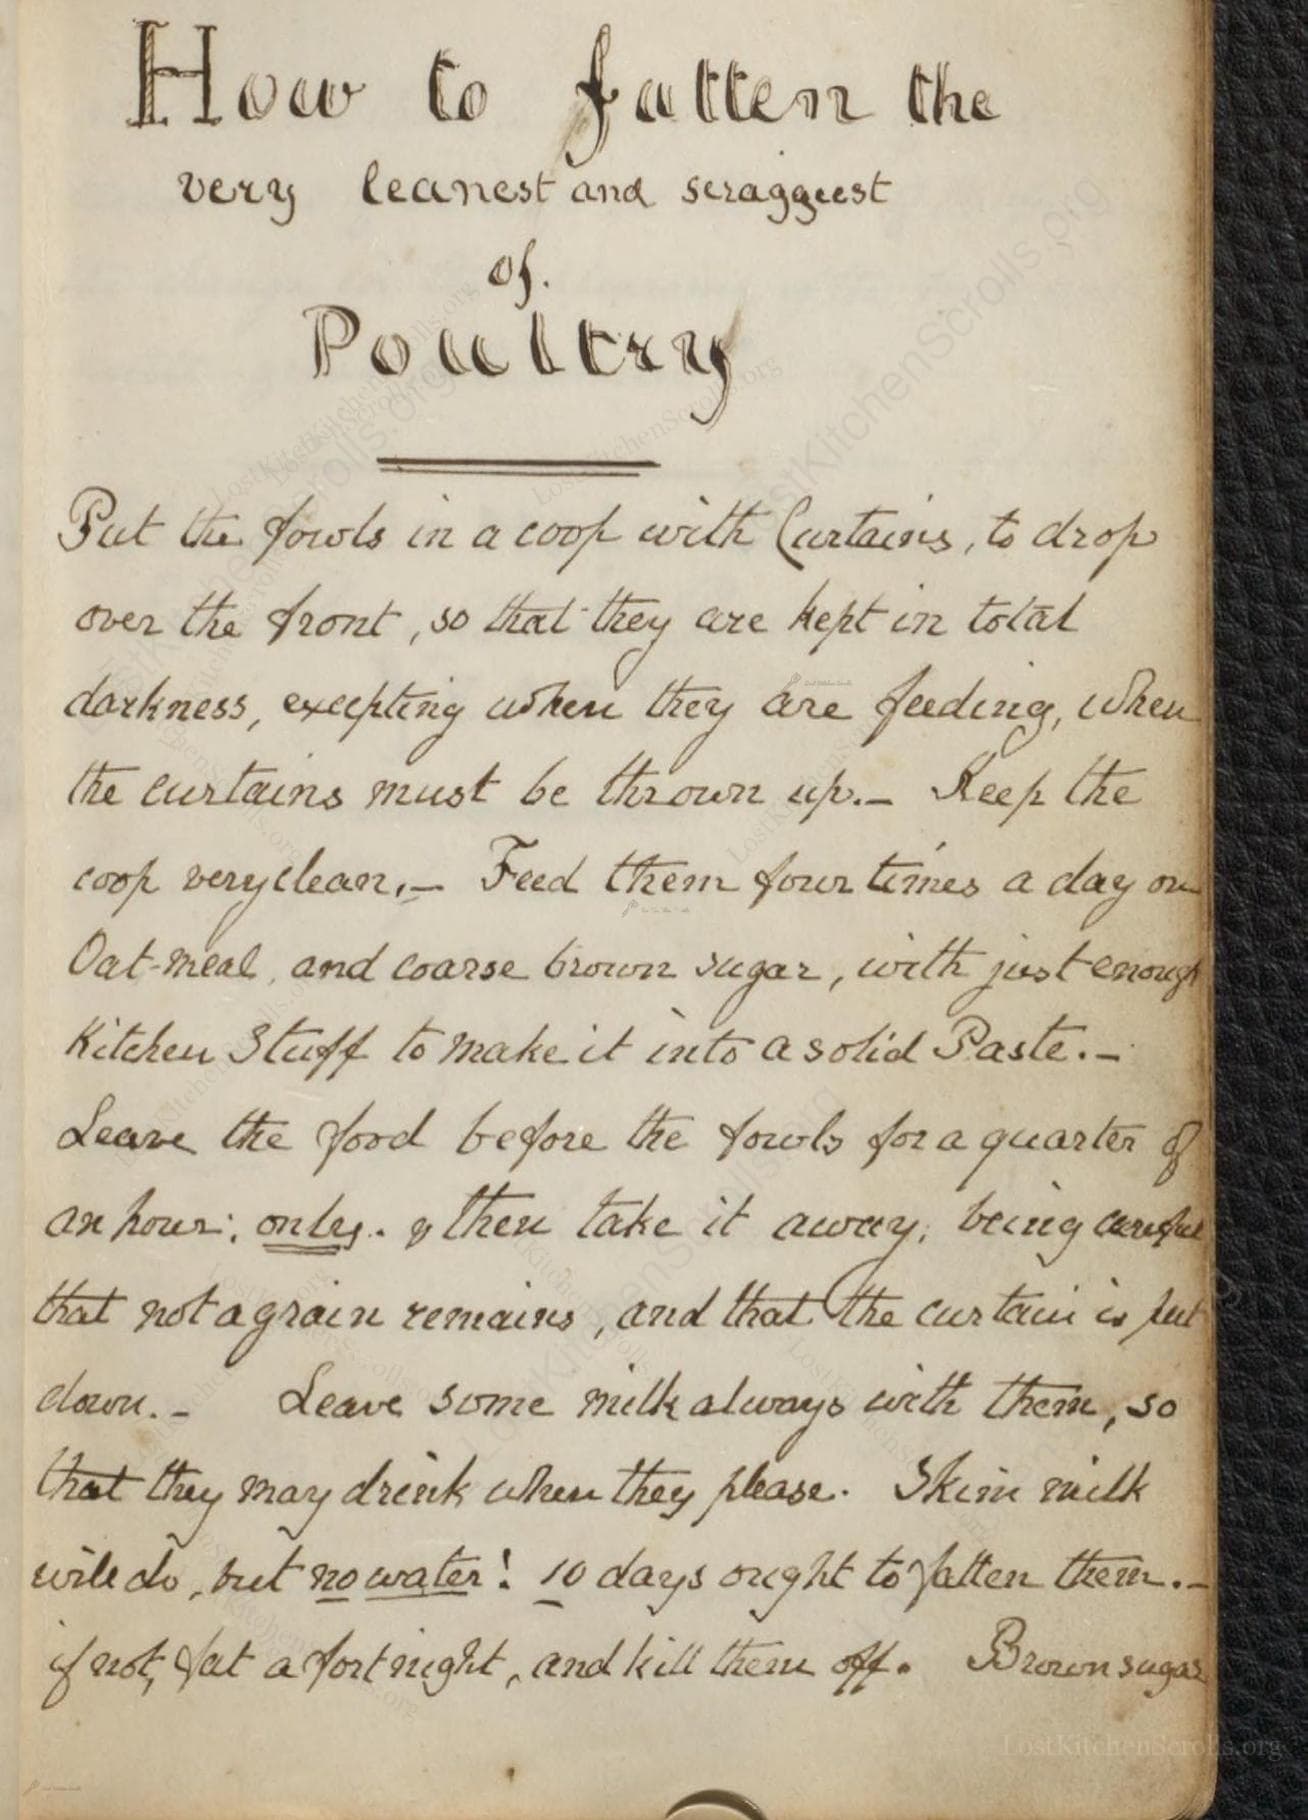 How to fatten the
very leanest and scraggiest
of.
Poultry
Put the fowls in a coop with Curtains, to drop
over the front, so that they are kept in total
darkness, excepting when they are feeding, when
the curtains must be thrown up.— Keep the
coop very clean.— Feed them four times a day on
Oat-meal, and coarse brown sugar, with just enough
Kitchen Stuff to make it into a solid Paste.—
Leave the food before the fowls for a quarter of
an hour; only. & then take it away; being careful
that not a grain remains, and that the curtain is put
down.— Leave some milk always with them, so
that they may drink when they please. Skim milk
will do, but no water! 10 days ought to fatten them.—
if not, fat a fortnight, and kill them off. Brown sugar
LostKitchenScrolls.org